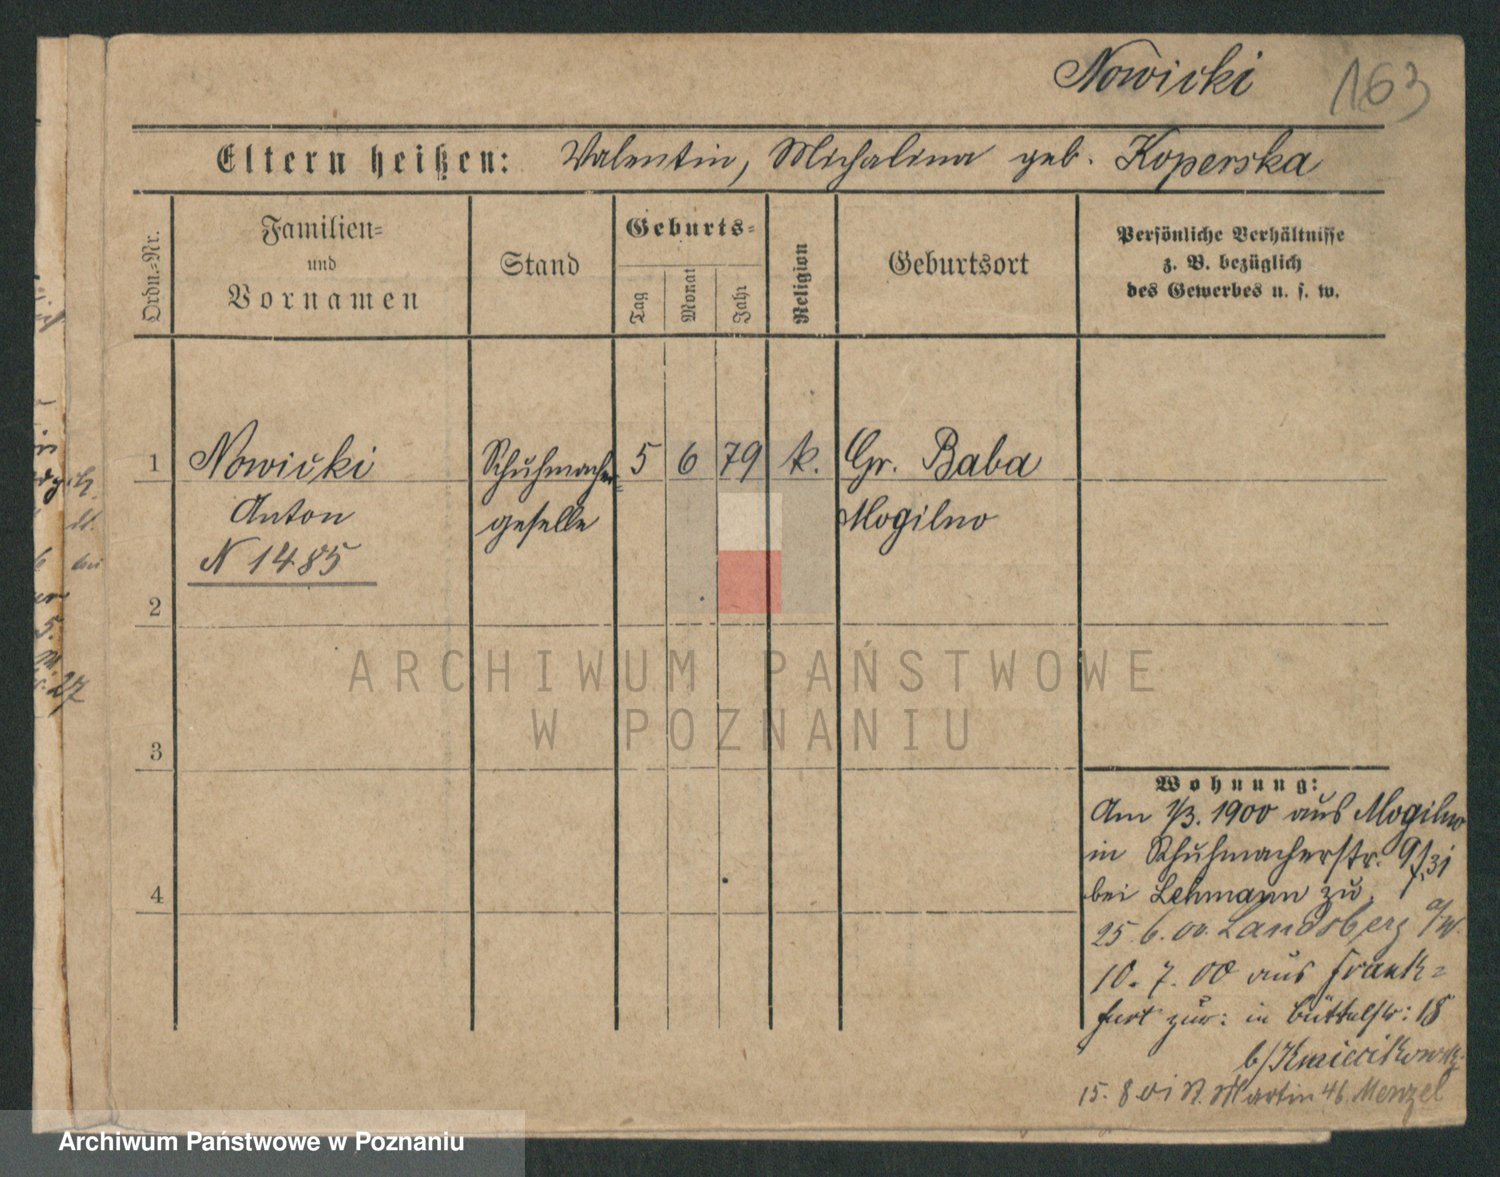 Nowicki 163
Eltern heißen: Valentin, Michalina geb. Koperska
Ordn.-Nr.
Familien-
und
Vornamen
Stand
Geburts-
Tag
Monat
Jahr
Religion
Geburtsort
Persönliche Verhältnisse
z. B. bezüglich
des Gewerbes u. s. w.
1 Nowicki Schuhmacher= 5 6 79 k. Gr. Baba
Anton geselle Mogilno
N 1485
2
3
4
Wohnung:
Am 1/3. 1900 aus Mogilno
in Schuhmacherstr. 9
bei Lehmann zu.
25. 6. 00. Landsberg a/W.
10. 7. 00 aus Frank=
furt zur: in Büttelstr: 18
b/
15. 8. 01 St. Martin 46. Menzel
27
ARCHIWUM PAŃSTWOWE
W POZNANIU
Archiwum Państwowe w Poznaniu